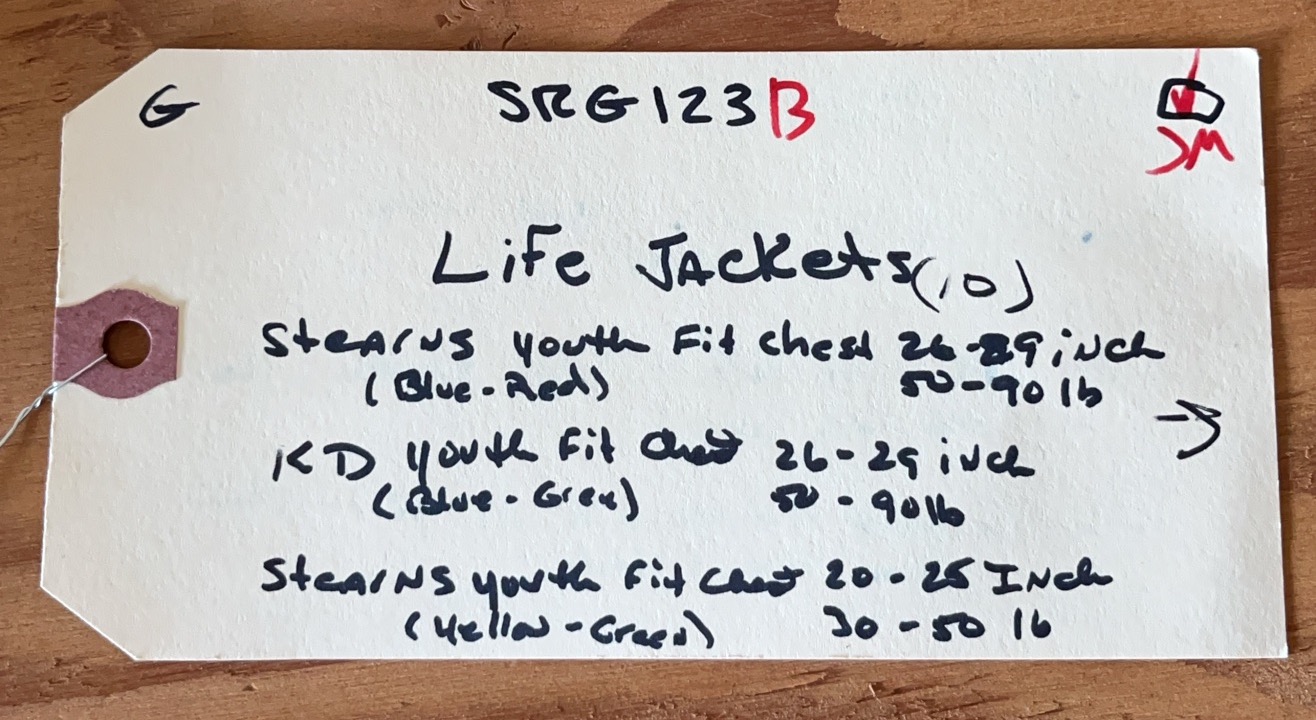 G SRG123B
JM
Life Jackets (10)
Stearns youth Fit Chest 26-29 inch
(Blue-Red) 50-90 lb
KD youth Fit Chest 26-29 inch
(Blue-Green) 50-90 lb
Stearns youth Fit Chest 20-25 Inch
(Yellow-Green) 30-50 lb